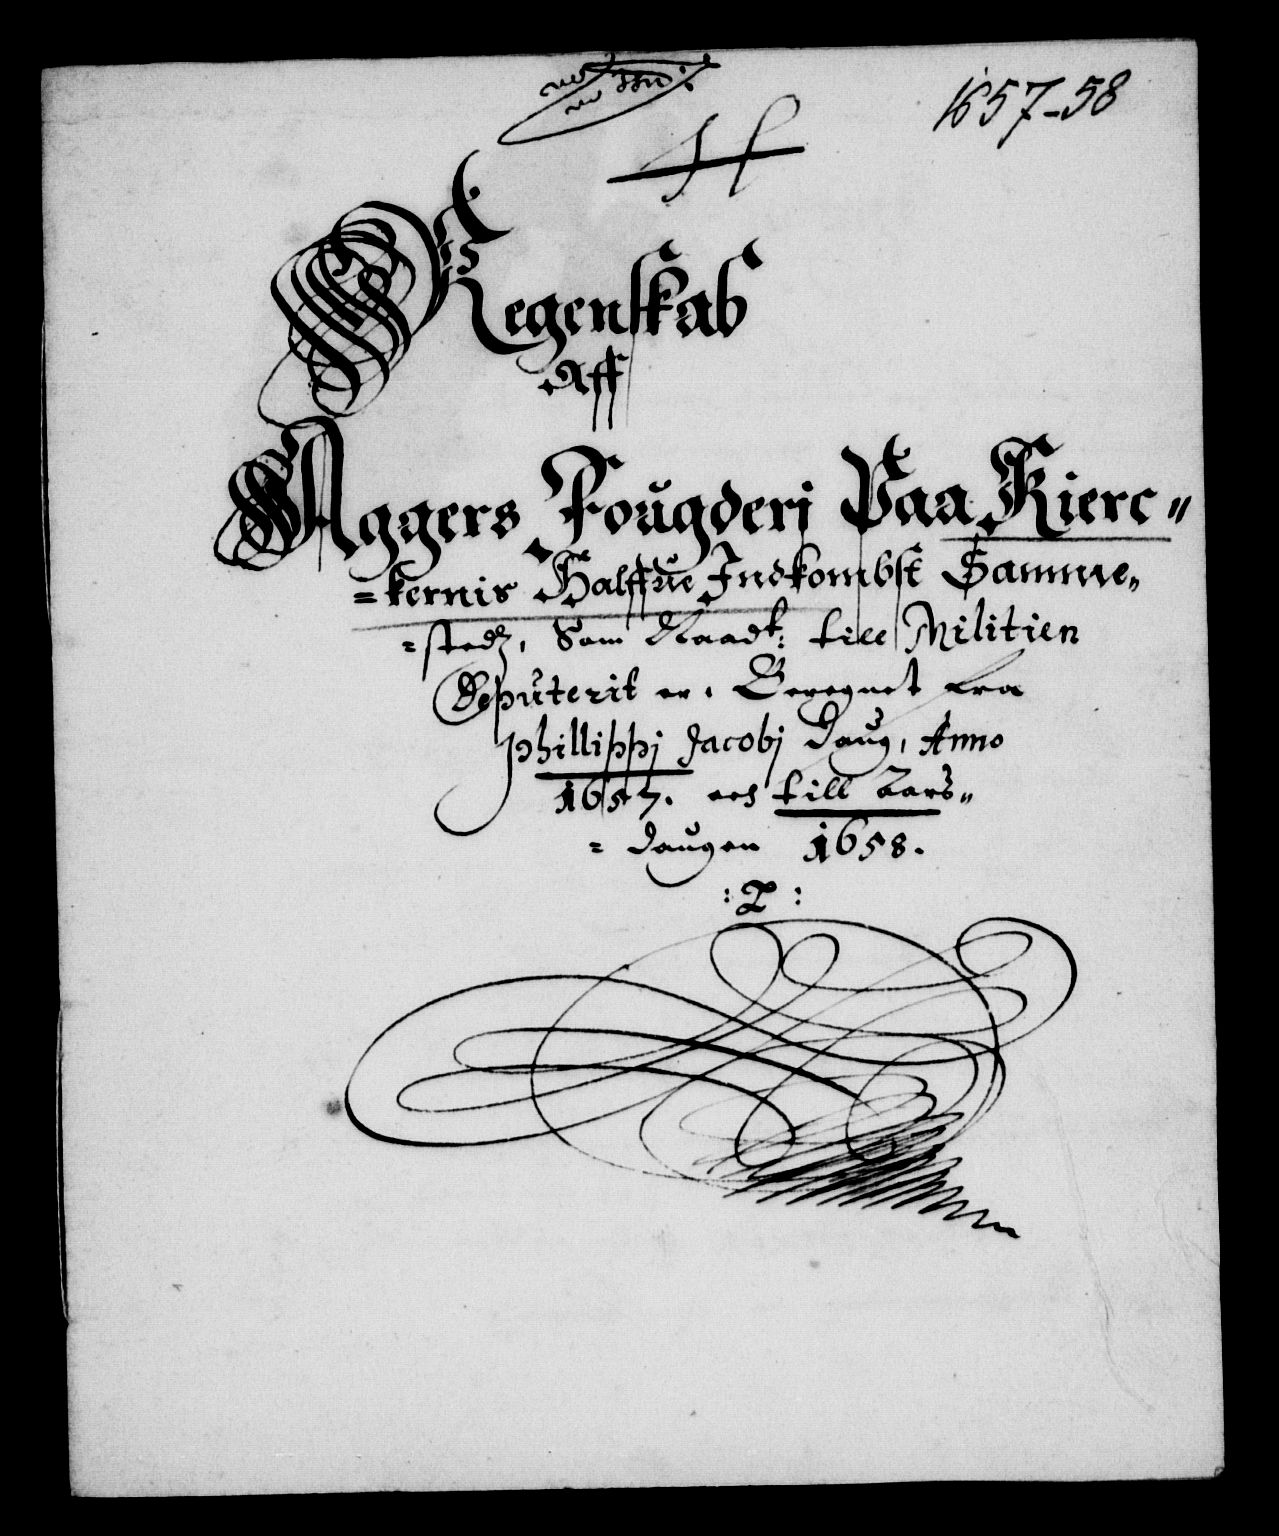 1657-58
Regenskab
Aff
Aggers Fougderi Paa Kierc"
=kernis Halffue Indkombst Samme"
=stedz, Som Naadt: till Militien
Deputerit er, Beregnet fra
Phillippi Jacobi Daug, Anno
1657. och till Aars"
=daugen 1658.